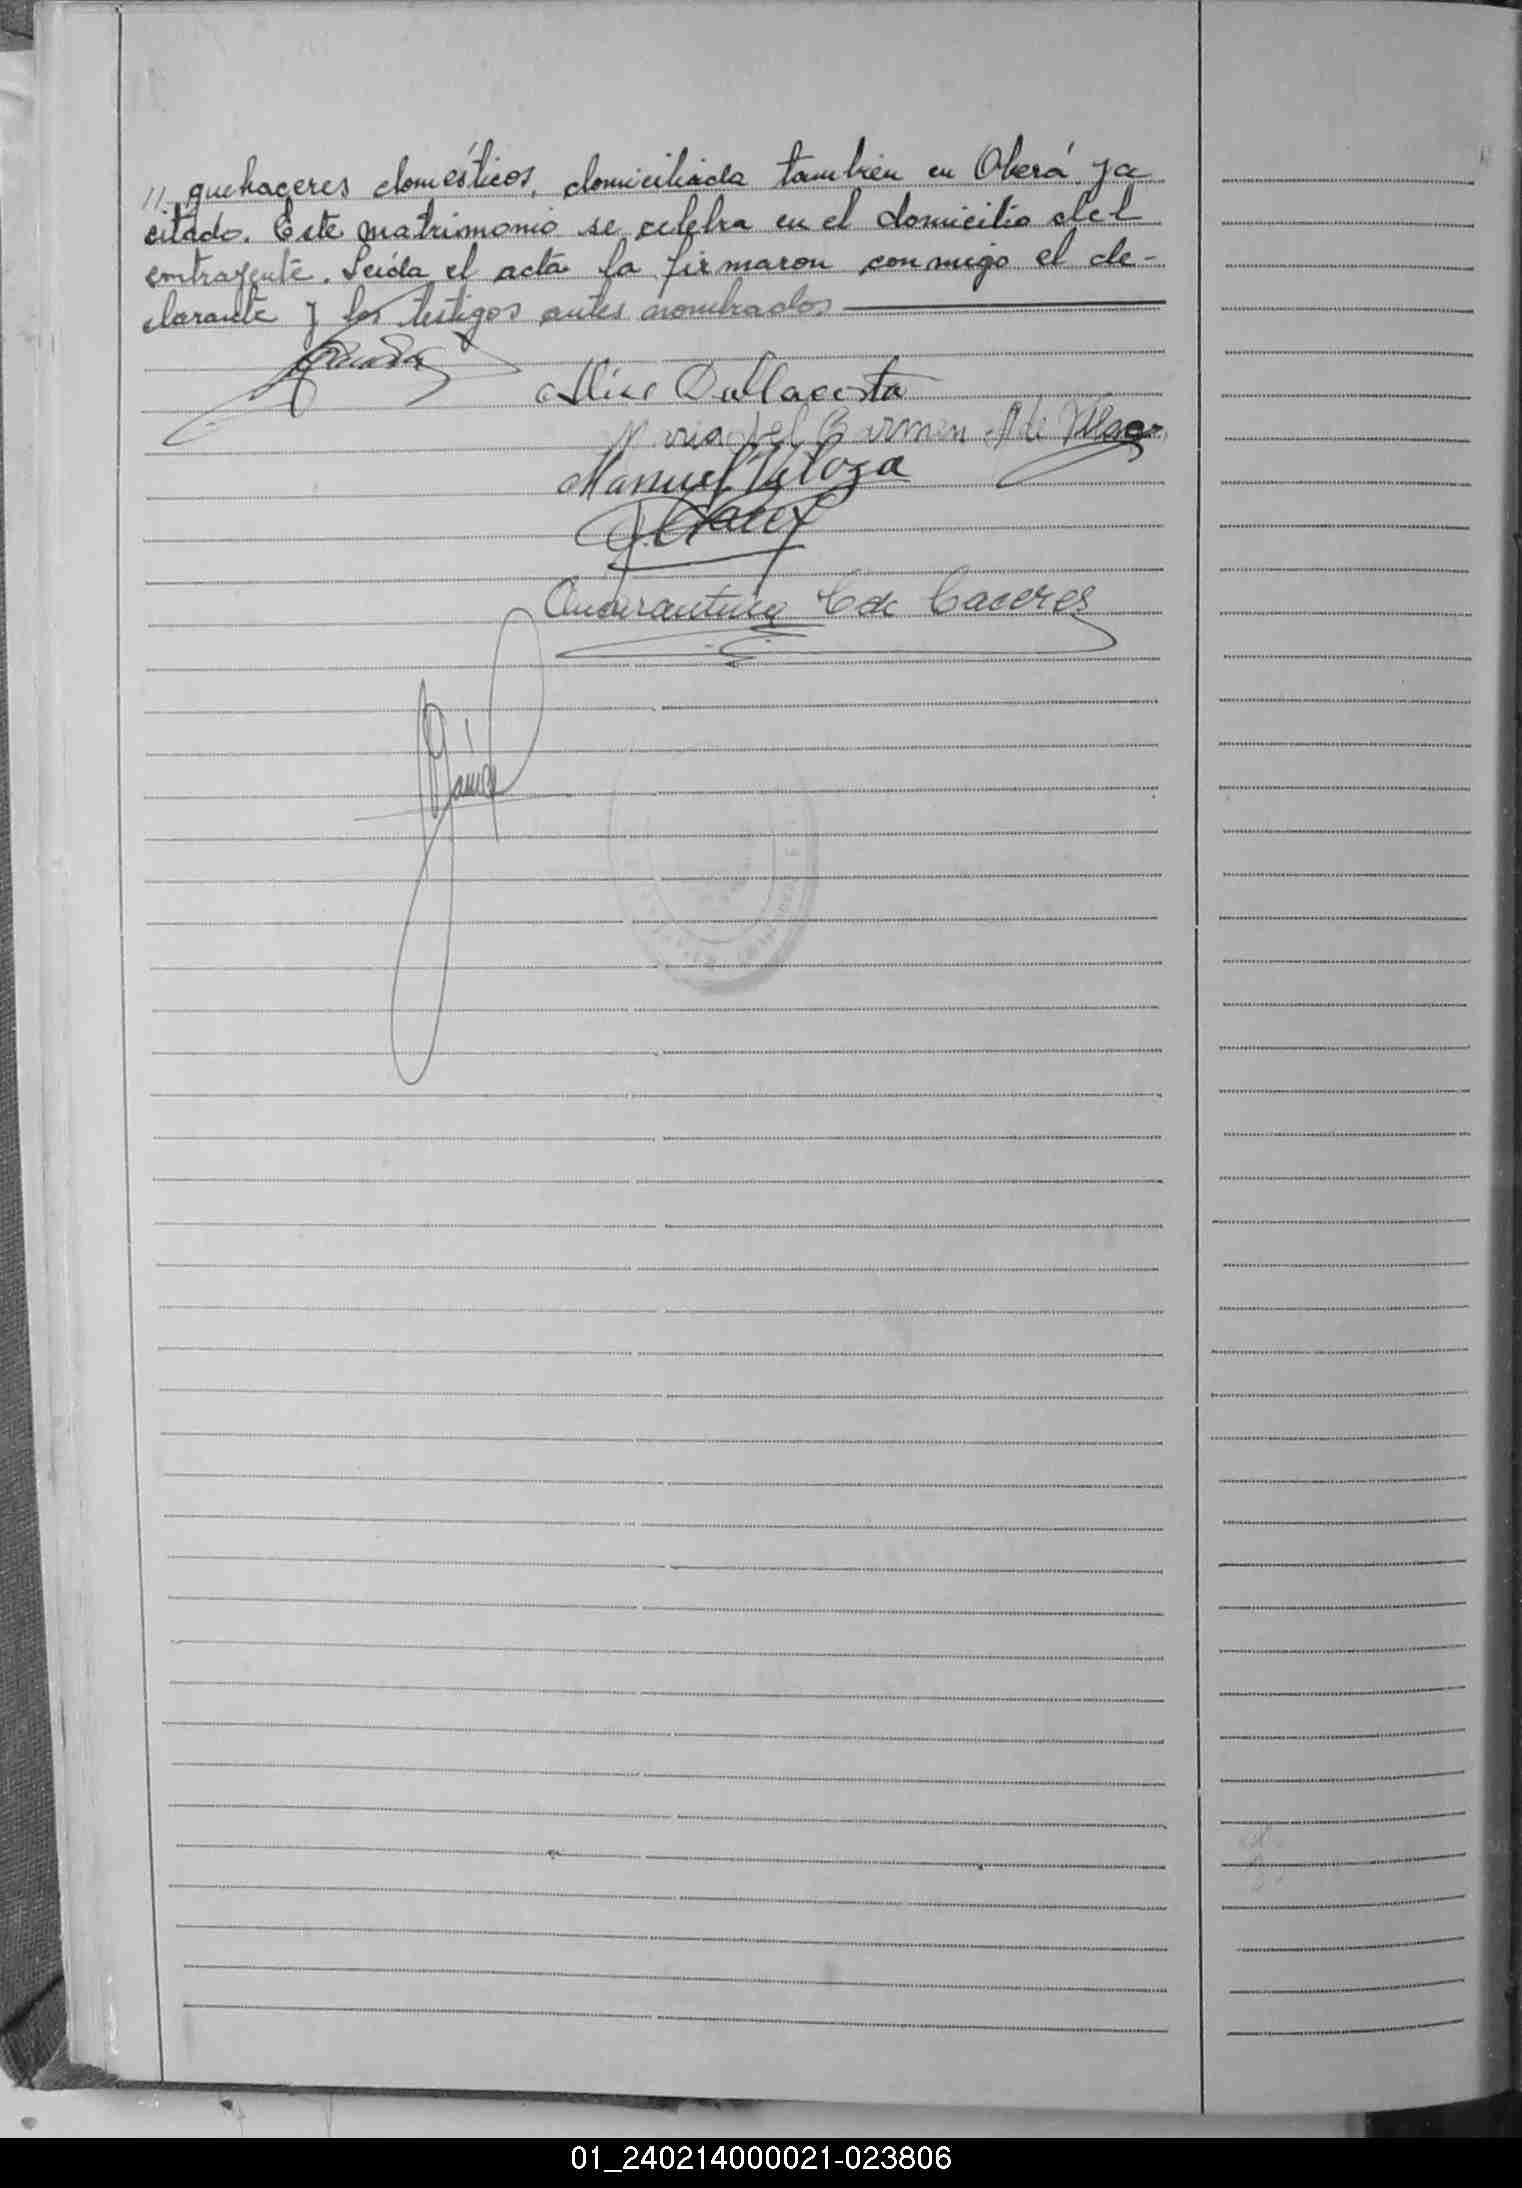 // quehaceres domésticos, domiciliada también en Oberá ya
citado. Este matrimonio se celebra en el domicilio del
contrayente. Leída el acta la firmaron conmigo el de-
clarante y los testigos antes nombrados
Dallacosta
Maria del Carmen A de
Manuel Veloza
C de Caceres
01_240214000021-023806